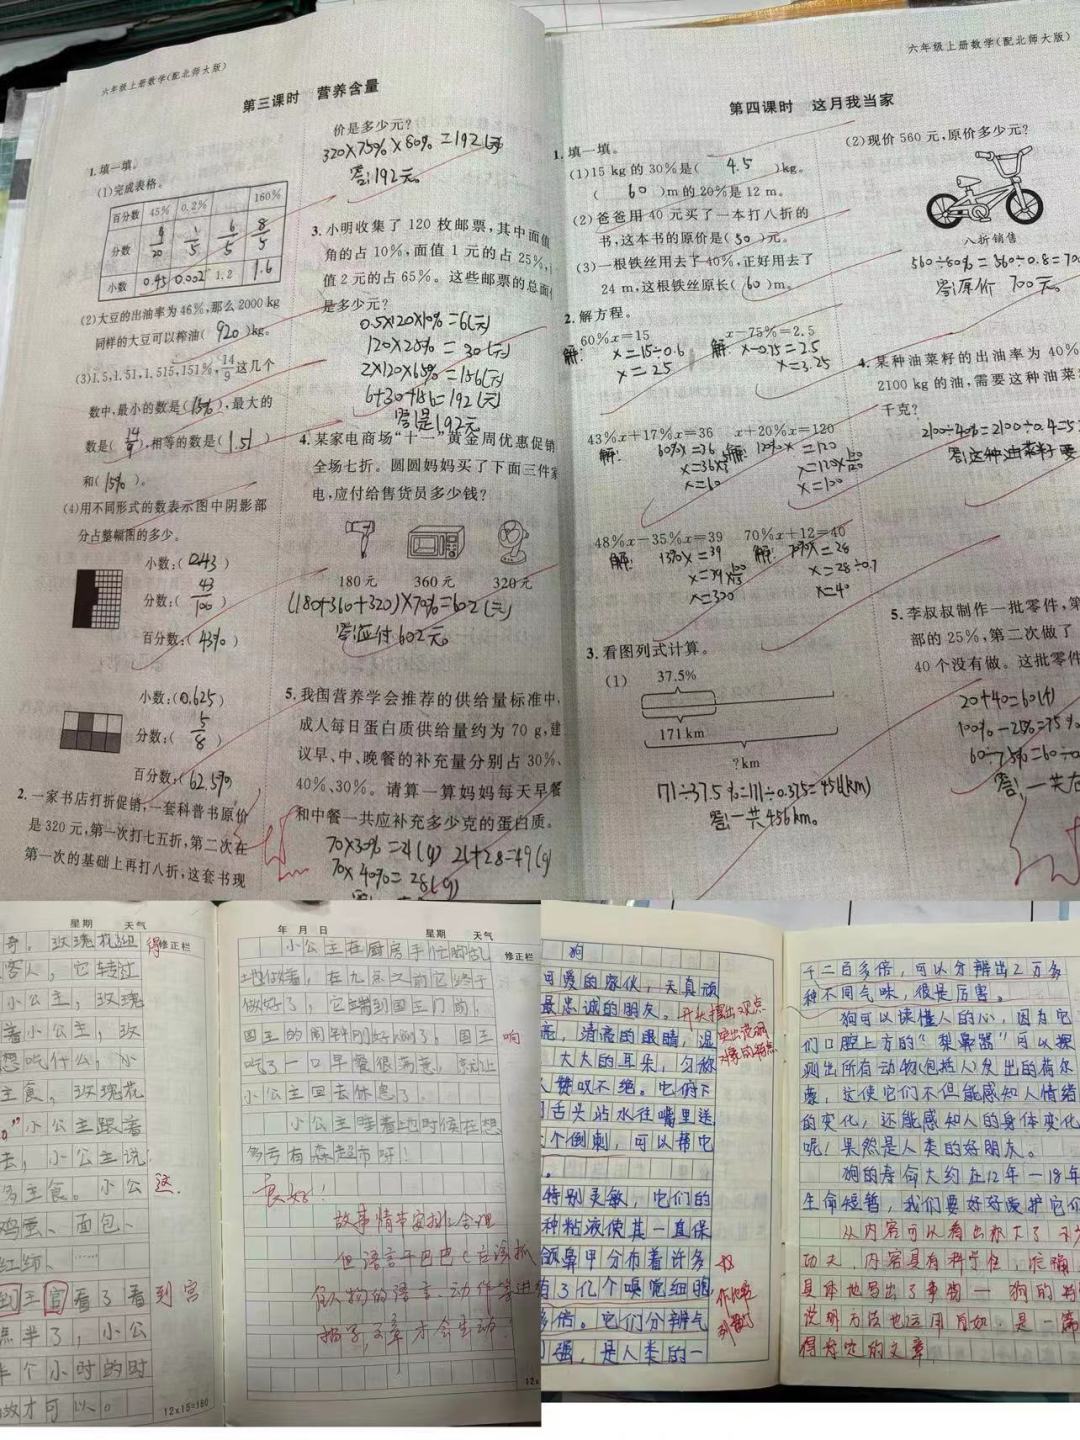 六年级上册数学(配北师大版)
第三课时 营养含量
1.填一填。
(1)完成表格。
百分数 45% 0.2% 160%
分数 9/20 1/5 6/5 8/5
小数 0.45 0.002 1.2 1.6
(2)大豆的出油率为46%,那么2000 kg
同样的大豆可以榨油(920)kg。
(3)1.5,1.51,1.515,151%,14/9这几个
数中,最小的数是(),最大的
数是(14/9),相等的数是(1.51)
和()。
(4)用不同形式的数表示图中阴影部
分占整幅图的多少。
小数:(0.43)
分数:(43/100)
百分数:(43%)
小数:(0.625)
分数:(5/8)
百分数:(62.5%)
2.一家书店打折促销,一套科普书原价
是320元,第一次打七五折,第二次在
第一次的基础上再打八折,这套书现
价是多少元?
320×75%×80%=192(元)
答:192元。
3.小明收集了120枚邮票,其中面值
角的占10%,面值1元的占25%,
值2元的占65%。这些邮票的总面
是多少元?
0.5×120×10%=6(元)
120×25%=30(元)
2×120×65%=156(元)
6+30+156=192(元)
答:是192元
4.某家电商场“十一”黄金周优惠促销
全场七折。圆圆妈妈买了下面三件家
电,应付给售货员多少钱?
180元 360元 320元
(180+360+320)×70%=602(元)
答:应付602元。
5.我国营养学会推荐的供给量标准中,
成人每日蛋白质供给量约为70 g,建
议早、中、晚餐的补充量分别占30%、
40%、30%。请算一算妈妈每天早餐
和中餐一共应补充多少克的蛋白质。
70×30%=21(g) 21+28=49(g)
70×40%=28(g)
六年级上册数学(配北师大版)
第四课时 这月我当家
1.填一填。
(1)15 kg的30%是(4.5)kg。
(60)m的20%是12 m。
(2)爸爸用40元买了一本打八折的
书,这本书的原价是(50)元。
(3)一根铁丝用去了40%,正好用去了
24 m,这根铁丝原长(60)m。
2.解方程。
60%x=15 x-75%=2.5
解: x=15÷0.6 解: x-0.75=2.5
x=25 x=3.25
43%x+17%x=36 x+20%x=120
解: 60%x=36 解: 120%x=120
x=60 x=100
48%x-35%x=39 70%x+12=40
解: 13%x=39 解: 70%x=28
x=39×100/13 x=28÷0.7
x=300 x=40
3.看图列式计算。
(1)
37.5%
171 km
? km
答:一共456km。
(2)现价560元,原价多少元?
八折销售
560÷80%=560÷0.8=700
答:原价700元。
4.某种油菜籽的出油率为40%
2100 kg的油,需要这种油菜
千克?
2100÷40%=2100÷0.4=5
答:这种油菜籽要
5.李叔叔制作一批零件,第
部的25%,第二次做了
40个没有做。这批零件
20+40=60(个)
100%-25%=75%
60÷75%=60÷0
答:一共有
星期 天气
修正栏
奇,玫瑰花迎 得
客人,它转过
小公主,玫瑰
着小公主,玫
想吃什么,小
主食,玫瑰花
小公主跟着
去,小公主说:
多主食。小公 这
鸡蛋、面包、
红绿、……
到王宫看了看 到宫
点半了,小公
半个小时的时
做才可以。
12x15=180
年 月 日 星期 天气
修正栏
小公主在厨房手忙脚乱
地做着,在九点之前它终于
做好了,它端到国王门前,
国王的闹钟刚好响了,国王 响
吃了一口早餐很满意,就让
小公主回去休息了。
小公主睡着的时候在想
多亏有森超市呀!
良好!
故事情节安排合理
但语言干巴巴(应该抓
住人物的语言、动作等进行
描写,文章才会生动)
狗
可爱的家伙,天真顽
最忠诚的朋友。 开头摆出观点
亮,清亮的眼睛,湿 突出说明
大大的耳朵,匀称 对象的特点
人赞叹不绝。它俯下
舌头沾水往嘴里送
个倒刺,可以帮它
。
特别灵敏,它们的
种粘液使其一直保
颌鼻甲分布着许多
有了亿个嗅觉细胞 作比较
多倍。它们分辨气 列数字
强,是人类的一
千二百多倍,可以分辨出2万多
种不同气味,很是厉害。
狗可以读懂人的心,因为它
们口腔上方的“梨鼻器”可以探
测出所有动物(包括人)发出的荷尔
蒙,这使它们不但能感知人情绪
的变化,还能感知人的身体变化
呢!果然是人类的好朋友。
狗的寿命大约在12年一18年
生命短暂,我们要好好爱护它们
从内容可以看出你下了不少
功夫,内容具有科学性,准确
具体地写出了事物一狗的特
说明方法也运用自如,是一篇
得肯定的文章。